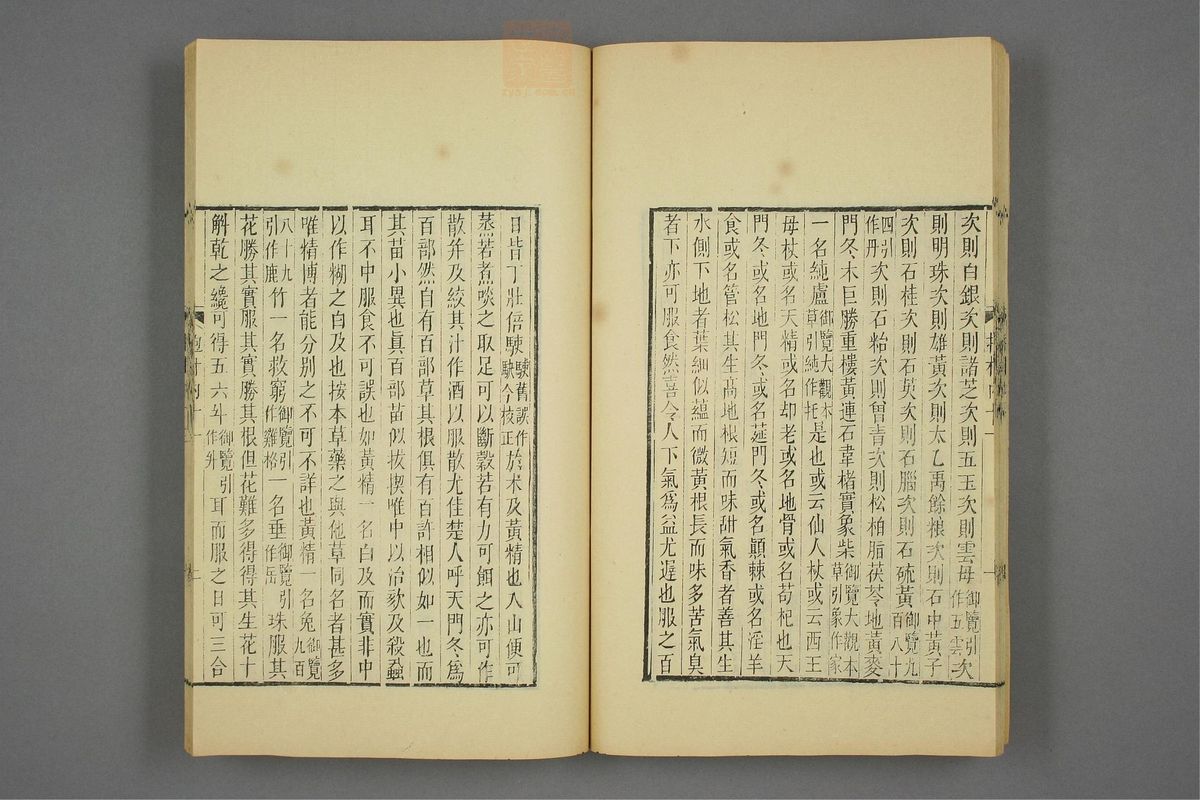 次則白銀次則諸芝次則五玉次則雲母御覽引作五雲次
則明珠次則雄黃次則太乙禹餘粮次則石中黃子
次則石桂次則石英次則石腦次則石硫黃御覽九百八十
四引作丹次則石粘次則曾青次則松柏脂茯苓地黃麥
門冬木巨勝重樓黃連石韋楮實象柴御覽大觀本草引象作家
一名純盧御覽大觀本草引純作托是也或云仙人杖或云西王
母杖或名天精或名却老或名地骨或名茍杞也天
門冬或名地門冬或名莚門冬或名顚棘或名淫羊
食或名管松其生高地根短而味甜氣香者善其生
水側下地者葉細似蕴而微黃根長而味多苦氣臭
者下亦可服食然喜令人下氣爲益尤遲也服之百
日皆丁壯倍駛駛舊誤作駃今校正於术及黃精也入山便可
蒸若煮啖之取足可以斷穀若有力可餌之亦可作
散并及絞其汁作酒以服散尤佳楚人呼天門冬爲
百部然自有百部草其根俱有百許相似如一也而
其苗小異也眞百部苗似拔揳唯中以治欬及殺蝨
耳不中服食不可誤也如黃精一名白及而實非中
以作糊之白及也按本草藥之與他草同名者甚多
唯精博者能分别之不可不詳也黃精一名兔御覽九百
八十九引作鹿竹一名救窮御覽引作雞格一名垂御覽引作岳珠服其
花勝其實服其實勝其根但花難多得得其生花十
斛乾之纔可得五六斗御覽引作升耳而服之日可三合